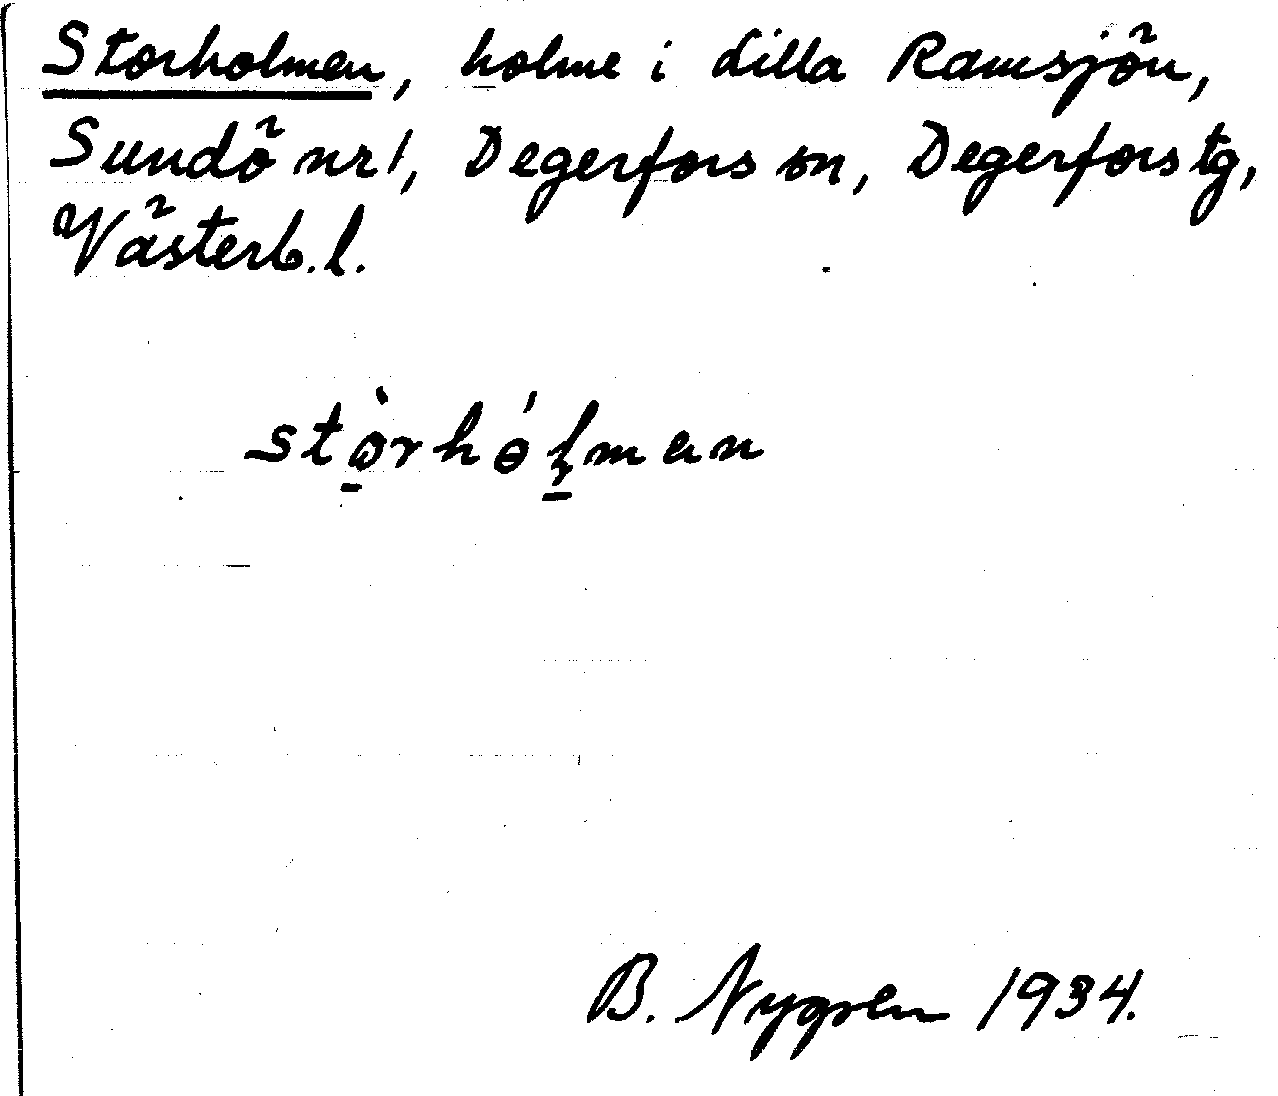 Storholmen, holme i Lilla Ramsjön,
Sundö nr 1, Degerfors sn, Degerfors tg,
Västerb. l.
stò̱rhɵ́ɭ̱man
B. Nygren 1934.